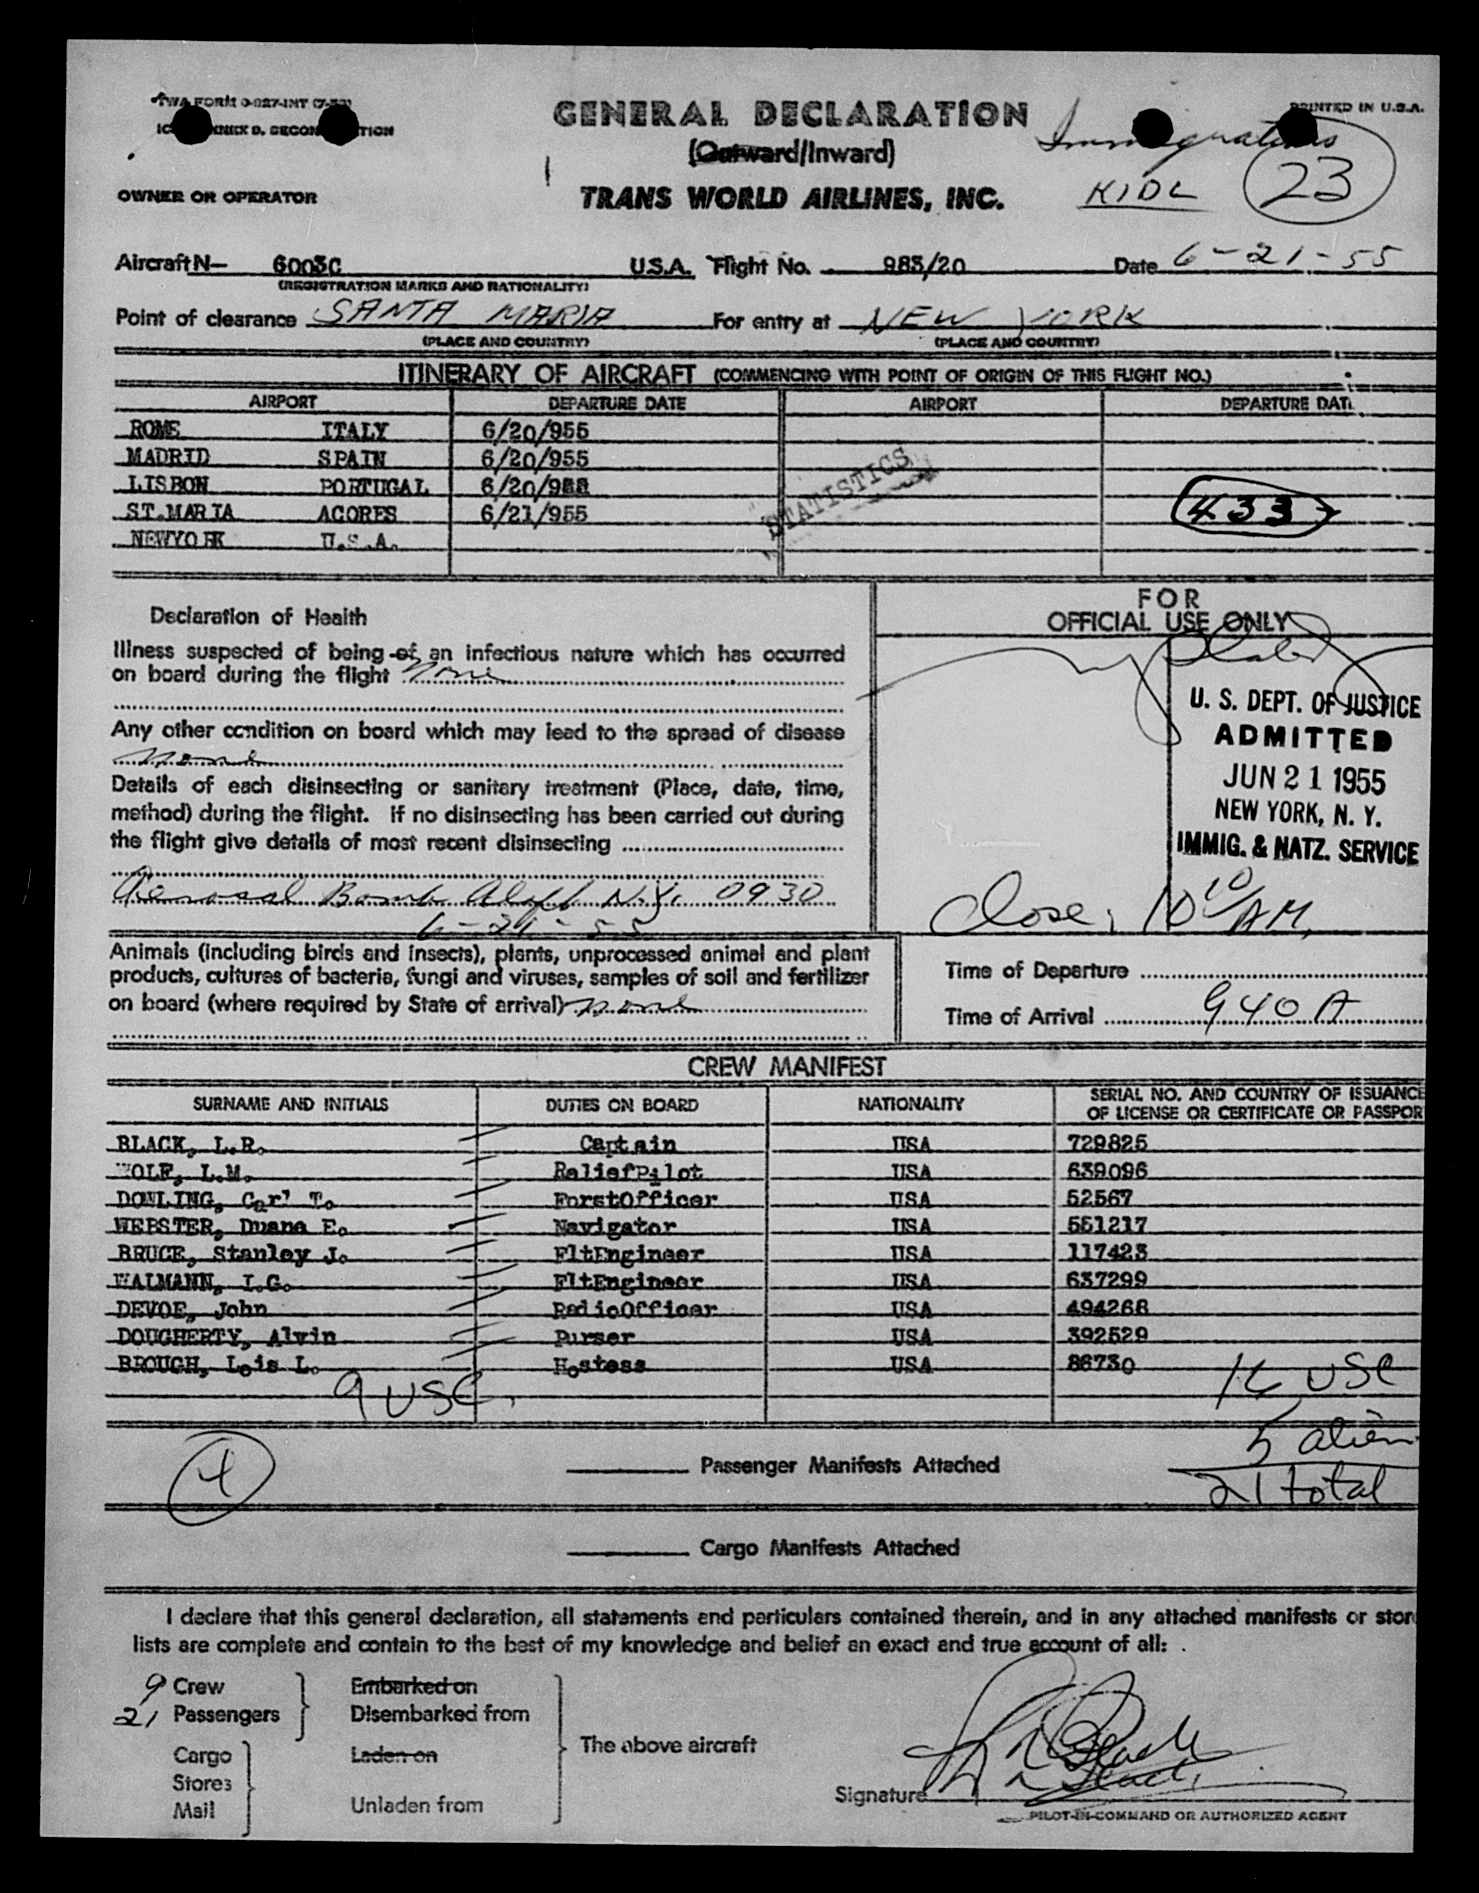 TWA FORM 0-027-INT
GENERAL DECLARATION
PRINTED IN U.S.A.
(Outward/Inward)
Immigrations
OWNER OR OPERATOR
TRANS WORLD AIRLINES, INC.
KIDL
23
Aircraft N— 6003C U.S.A. Flight No. 983/20 Date 6-21-55
(REGISTRATION MARKS AND NATIONALITY)
Point of clearance SANTA MARIA For entry at NEW YORK
(PLACE AND COUNTRY) (PLACE AND COUNTRY)
ITINERARY OF AIRCRAFT (COMMENCING WITH POINT OF ORIGIN OF THIS FLIGHT NO.)
AIRPORT DEPARTURE DATE AIRPORT DEPARTURE DATE
ROME ITALY 6/20/955
MADRID SPAIN 6/20/955
LISBON PORTUGAL 6/20/955
ST.MARIA ACORES 6/21/955
NEWYORK U.S.A.
STATISTICS
433
FOR
OFFICIAL USE ONLY
Declaration of Health
Illness suspected of being of an infectious nature which has occurred
on board during the flight None
Any other condition on board which may lead to the spread of disease
None
Details of each disinsecting or sanitary treatment (Place, date, time,
method) during the flight. If no disinsecting has been carried out during
the flight give details of most recent disinsecting
Aerosol Bomb N.Y. 0930
6-21-55
U. S. DEPT. OF JUSTICE
ADMITTED
JUN 21 1955
NEW YORK, N. Y.
IMMIG. & NATZ. SERVICE
Close, 10 10/AM.
Animals (including birds and insects), plants, unprocessed animal and plant
products, cultures of bacteria, fungi and viruses, samples of soil and fertilizer
on board (where required by State of arrival) None
Time of Departure
Time of Arrival 940 A
CREW MANIFEST
SURNAME AND INITIALS DUTIES ON BOARD NATIONALITY SERIAL NO. AND COUNTRY OF ISSUANCE
OF LICENSE OR CERTIFICATE OR PASSPOR
BLACK, L.R. Captain USA 729825
WOLF, L.M. ReliefPilot USA 639096
DOWLING, Carl T. ForstOfficer USA 52567
WEBSTER, Duane E. Navigator USA 551217
BRUCE, Stanley J. FltEngineer USA 117423
WALMANN, I.G. FltEngineer USA 637299
DEVOE, John RadioOfficer USA 494268
DOUGHERTY, Alvin Purser USA 392529
BROUGH, Lois L. Hostess USA 86730
9 USC.
16 USC
5 alien
21 total
4
Passenger Manifests Attached
Cargo Manifests Attached
I declare that this general declaration, all statements and particulars contained therein, and in any attached manifests or stor
lists are complete and contain to the best of my knowledge and belief an exact and true account of all:
9 Crew Embarked on
21 Passengers Disembarked from
The above aircraft
Cargo Laden on
Stores
Mail Unladen from
Signature
PILOT-IN-COMMAND OR AUTHORIZED AGENT